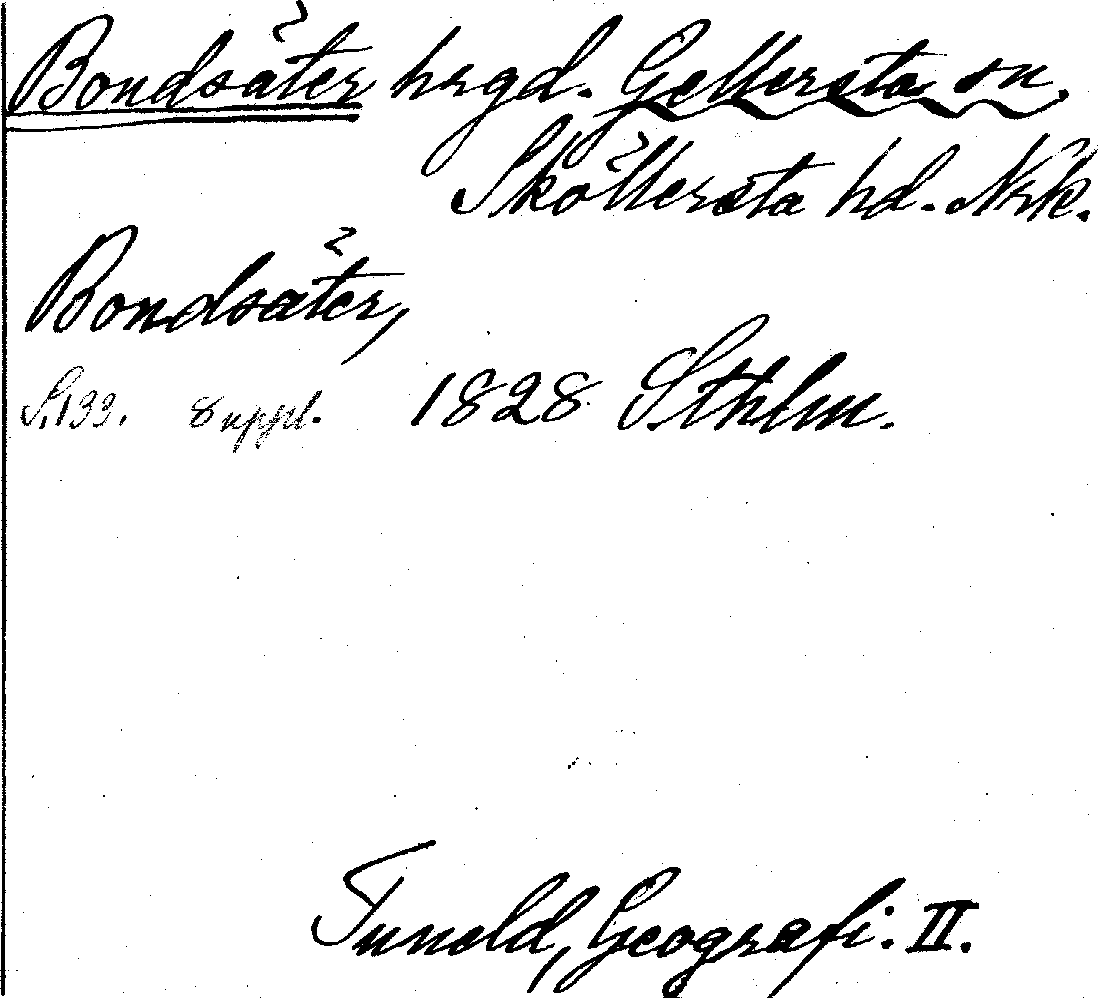 Bondsäter hrgd. Gellersta sn.
Sköllersta hd. Nrk.
Bondsäter,
S. 133. Suppl. 1828 Sthlm.
Tuneld, Geografi. II.